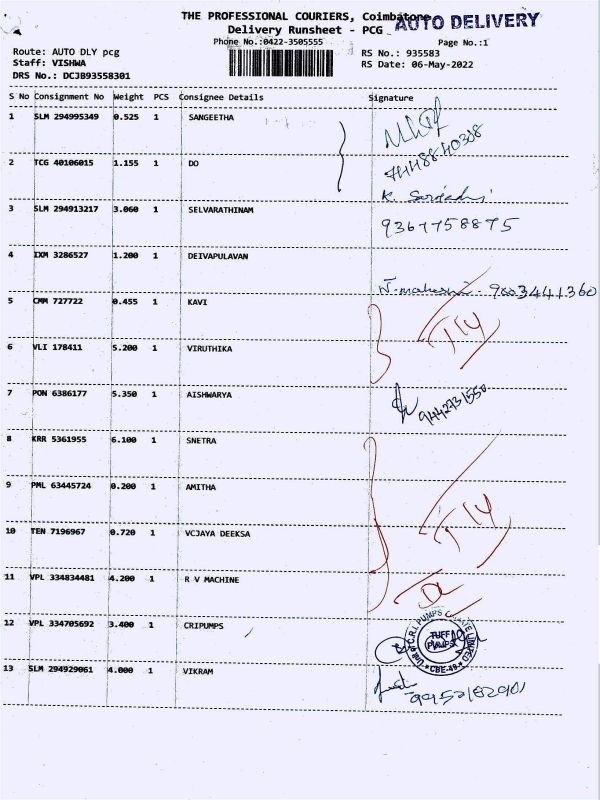 THE PROFESSIONAL COURIERS, Coimbatore
AUTO DELIVERY
Delivery Runsheet - PCG
Phone No.:0422-3505555
Page No.:1
Route: AUTO DLY pcg
RS No.: 935583
Staff: VISHWA
RS Date: 06-May-2022
DRS No.: DCJB93558301
S No Consignment No Weight PCS Consignee Details Signature
1 SLM 294995349 0.525 1 SANGEETHA
2 TCG 40106015 1.155 1 DO
3 SLM 294913217 3.060 1 SELVARATHINAM
9367758875
4 IXM 3286527 1.200 1 DEIVAPULAVAN
9003441360
5 CMM 727722 0.455 1 KAVI
6 VLI 178411 5.200 1 VIRUTHIKA
7 PON 6386177 5.350 1 AISHWARYA
9442731550
8 KRR 5361955 6.100 1 SNETRA
9 PML 63445724 0.200 1 AMITHA
10 TEN 7196967 0.720 1 VCJAYA DEEKSA
11 VPL 334834481 4.200 1 R V MACHINE
12 VPL 334705692 3.400 1 CRIPUMPS
TUFF
PUMPS
CBE-49
13 SLM 294929061 4.000 1 VIKRAM
9952182901